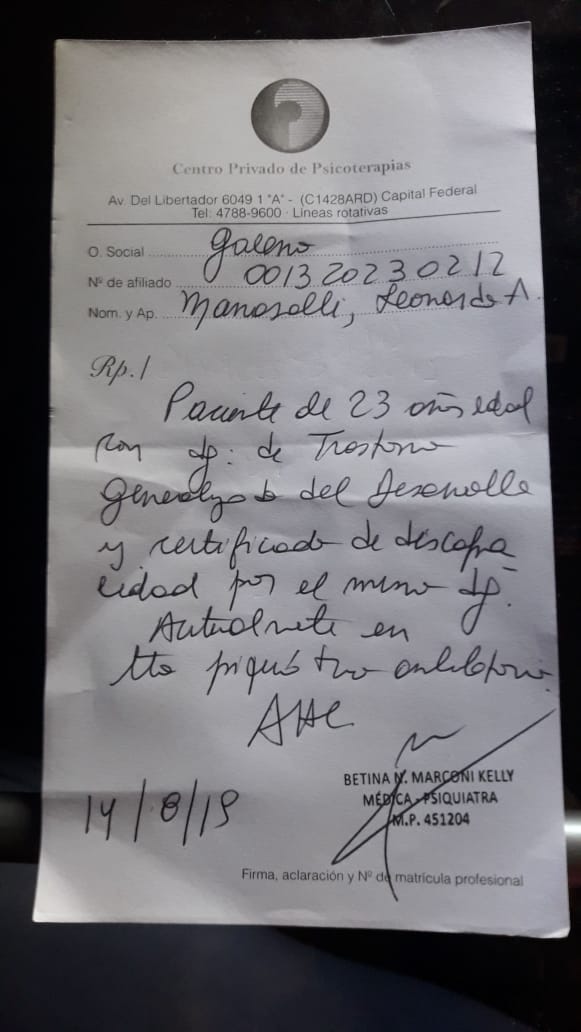 Centro Privado de Psicoterapias
Av. Del Libertador 6049 1 "A" - (C1428ARD) Capital Federal
Tel: 4788-9600 · Líneas rotativas
O. Social galeno
Nº de afiliado 0013 20230212
Nom. y Ap. , Leonardo A.
Rp./
Paciente de 23 años edad
con dg: de Trastorno
Generalizado del Desarrollo
y certificado de discapa-
cidad por el mismo dg.
Actualmente en
tto psiquiátrico ambulatorio.
14/8/19
BETINA N. MARCONI KELLY
MÉDICA - PSIQUIATRA
M.P. 451204
Firma, aclaración y Nº de matrícula profesional